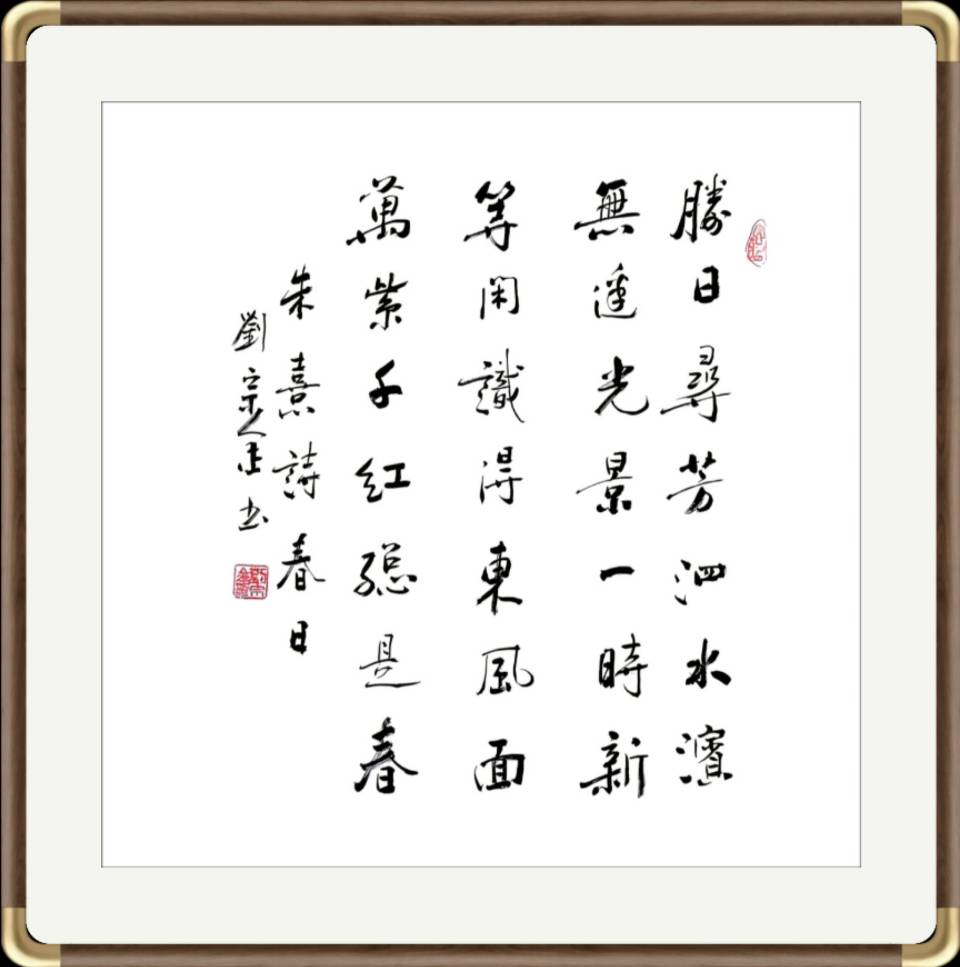 勝日尋芳泗水濱
無邊光景一時新
等閑識得東風面
萬紫千紅總是春
朱熹詩春日
劉宗金书